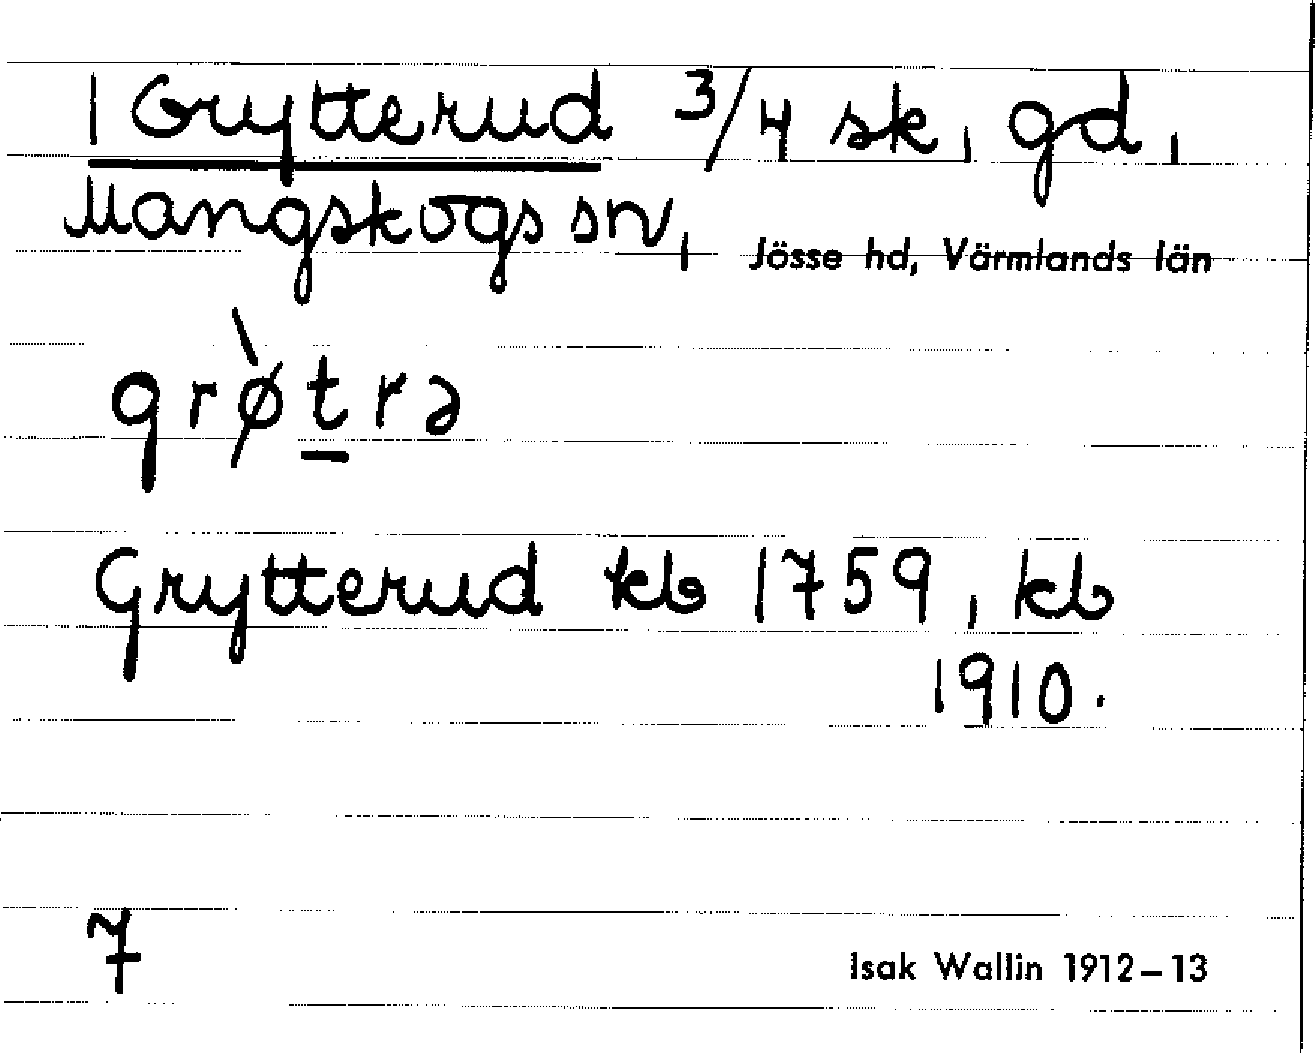 1 Grytterud 3/4 sk, gd,
Mangskogs sn, Jösse hd, Värmlands län
grø̀t̲rə
Grytterud kb 1759, kb
1910.
7
Isak Wallin 1912–13